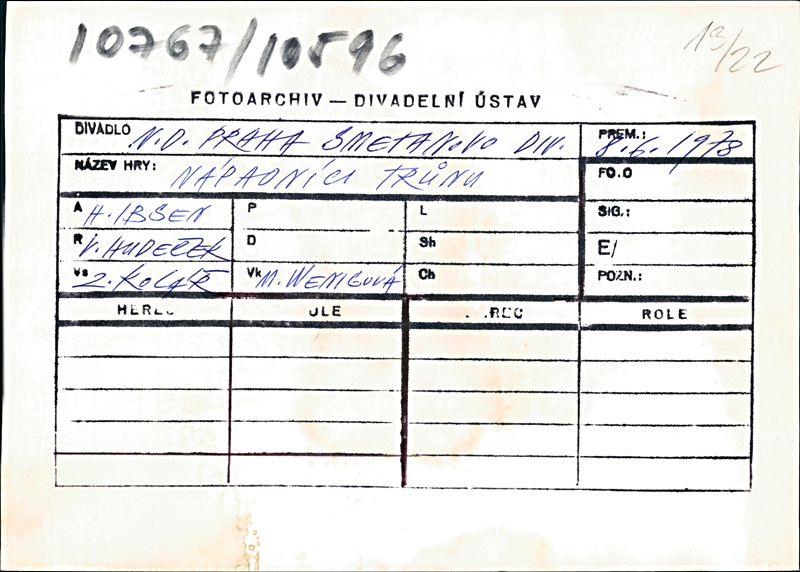 10767/10596
13/22
FOTOARCHIV — DIVADELNÍ ÚSTAV
DIVADLO N.D. PRAHA SMETANOVO DIV.
PREM.: 8.6.1978
NÁZEV HRY: NÁPADNÍCI TRŮNU
FO.O
A H. IBSEN
P
L
SIG.:
R V. HUDEČEK
D
Sh
E/
Vs Z. KOLÁŘ
Vk M. WENIGOVÁ
Ch
POZN.:
HEREC ROLE HEREC ROLE